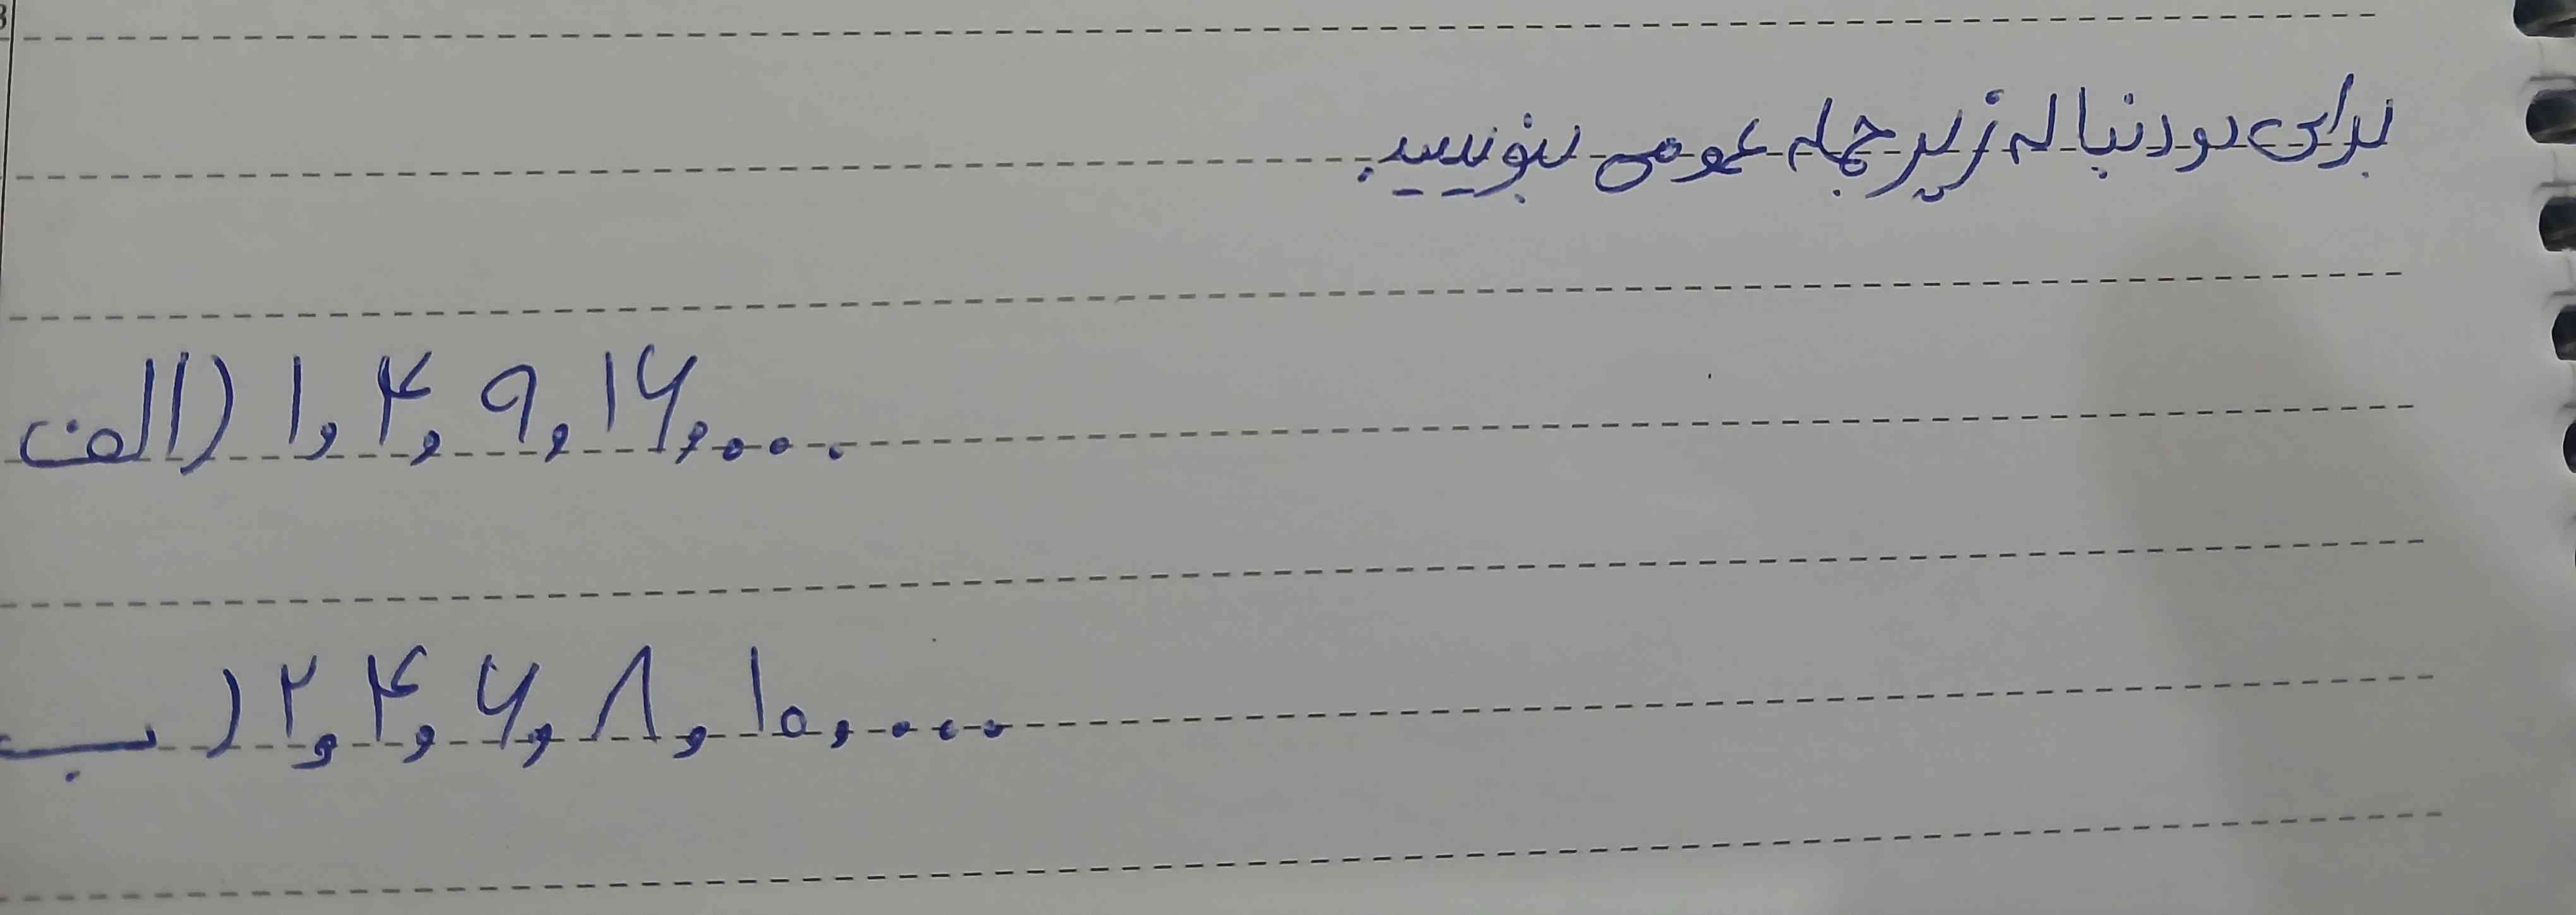 برای دو دنباله زیر جمله عمومی بنویسید.
الف) ۱, ۴, ۹, ۱۶, ...
ب) ۲, ۴, ۶, ۸, ۱۰, ...